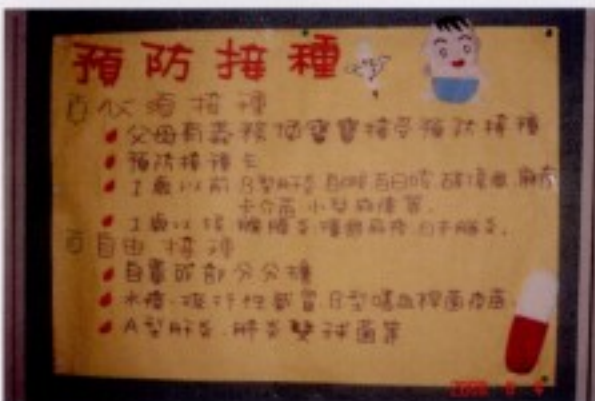 預防接種
必須接種
父母有義務使寶寶接受預防接種
預防接種卡
1歲以前 B型肝炎 白喉 百日咳 破傷風 麻疹
卡介苗 小兒麻痺等.
1歲以後 腮腺炎 德國麻疹 日本腦炎.
自由接種
自費或部分
水痘、流行性感冒 B型嗜血桿菌疫苗.
A型肝炎 肺炎雙球菌等